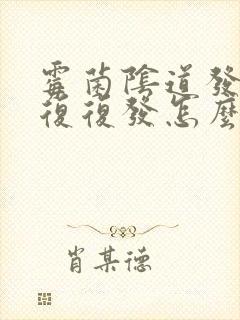 霉菌陰道發
復復發怎麼
肖某德